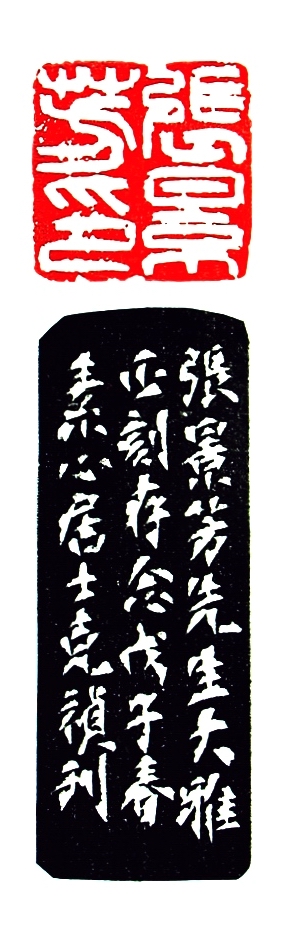 張景
芳印
張景芳先生大雅
正刻存念戊子春
素心居士克禎刊